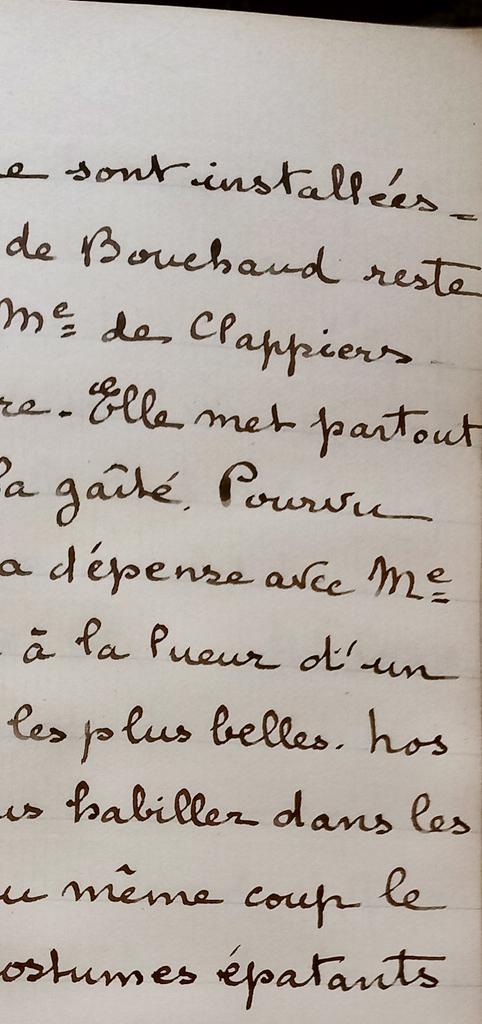 e sont installées -
de Bouchaud reste
Mᵉ de Clappiers
re. Elle met partout
la gaîté. Pourvu
a dépense avec Mᵉ
à la lueur d'un
les plus belles. Nos
us habiller dans les
u même coup le
ostumes épatants